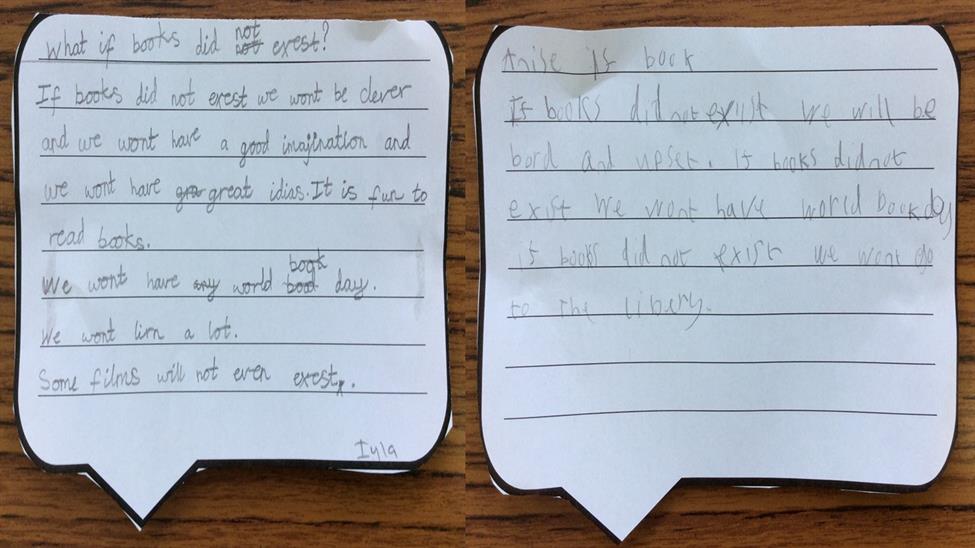 What if books did not exest?
If books did not exest we wont be clever
and we wont have a good imajination and
we wont have great idias. It is fun to
read books.
We wont have world book day.
We wont lirn a lot.
Some films will not even exest.
Iyla
is book
If books did not exist we will be
bord and upset. if books did not
exist we wont have world book day
if books did not exist we wont go
to the libery.